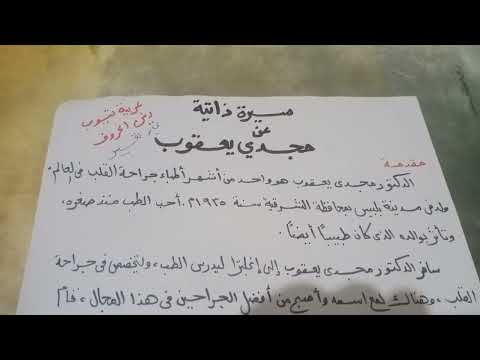 سيرة ذاتية
عن
مجدي يعقوب
عربية تيوب
مقدمة
الدكتور مجدي يعقوب هو واحد من أشهر أطباء جراحة القلب فى العالم.
ولد فى مدينة بلبيس بمحافظة الشرقية سنة ١٩٣٥م. أحب الطب منذ صغره،
وتأثر بوالده الذى كان طبيبًا أيضًا.
سافر الدكتور مجدى يعقوب إلى إنجلترا ليدرس الطب، وتخصص فى جراحة
القلب، وهناك لمع اسمه وأصبح من أفضل الجراحين فى هذا المجال، قام